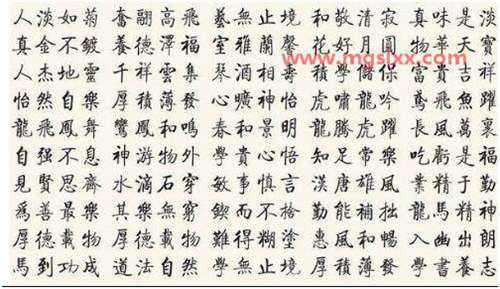 人淡如菊 奮翮高飛 藝無止境 和敬清寂 真味是淡
真金不鍍 養德澤福 室雅蘭馨 花好月圓 物華天寶
人杰地靈 千祥雲集 琴酒相壽 積學儲 富貴吉祥
怡然自樂 厚積薄發 心曠神怡 虎嘯龍吟 鳶飛魚躍
龍飛鳳舞 鸞鳳和鳴 春和景明 龍騰虎躍 長風萬裏
自强不息 神游物外 學貴心悟 知足常樂 吃虧是福
見賢思齊 水滴石穿 敏事慎言 漢唐雄風 業精于勤
爲善最樂 其樂無窮 鍥而不捨 勤能補拙 龍馬精神
厚德載物 難得糊塗 惠風和暢 入幽出朗
馬到功成 道法自然 學無止境 厚積薄發 學書養志
www.mgslxx.com